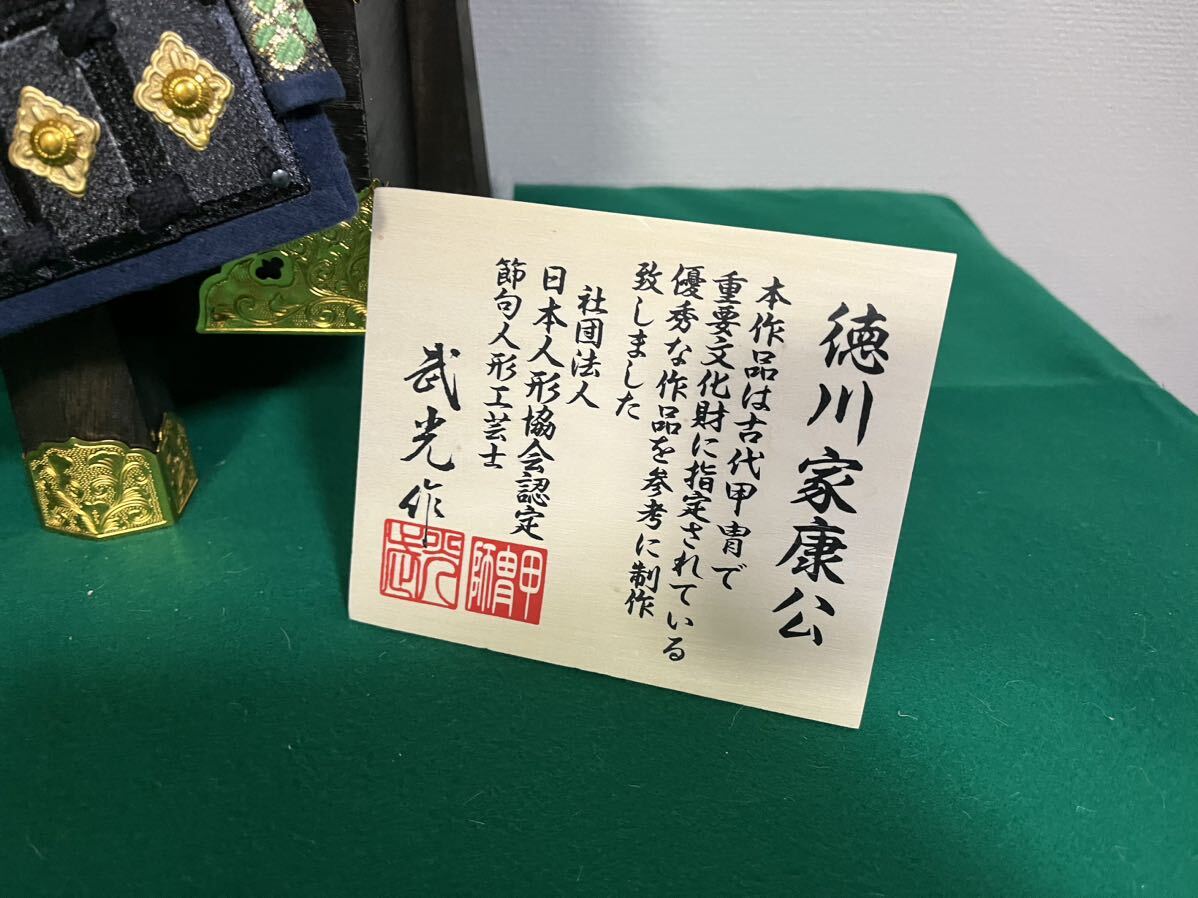 徳川家康公
本作品は古代甲冑で
重要文化財に指定されている
優秀な作品を参考に制作
致しました
社団法人
日本人形協会認定
節句人形工芸士
武光作
甲冑師
武光